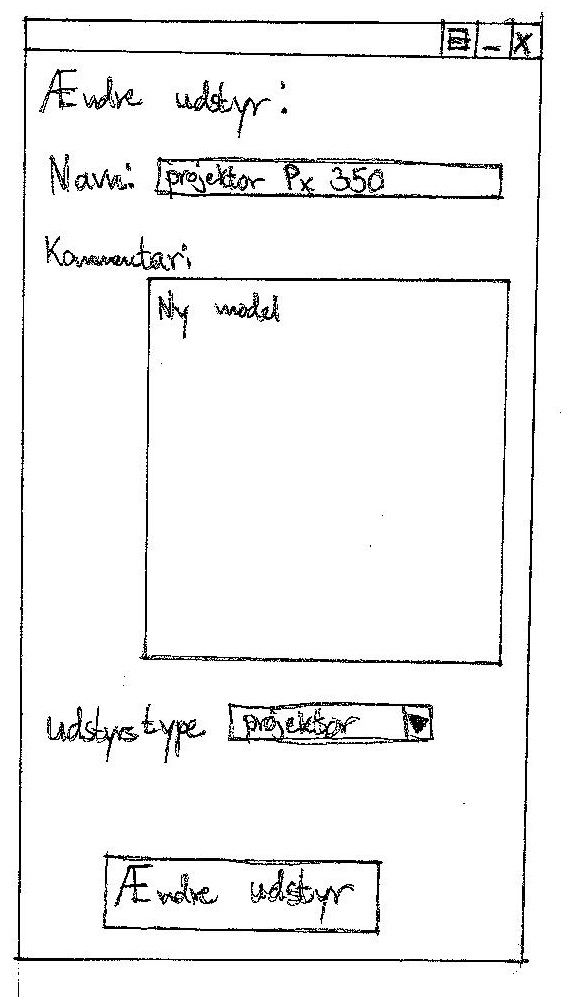 Ændre udstyr:
Navn: projektor Px 350
Kommentar:
Ny model
udstyrstype projektor
Ændre udstyr